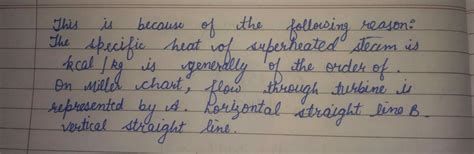 This is because of the following reason:
The specific heat of superheated steam is
kcal/kg is generally of the order of.
On Miller chart, flow through turbine is
represented by A. horizontal straight line B.
vertical straight line.